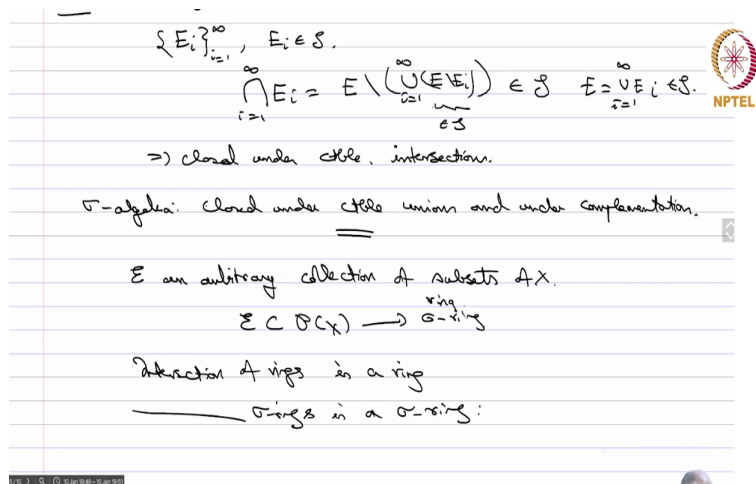 {E_i}_{i=1}^∞, E_i ∈ S.
⋂_{i=1}^∞ E_i = E \ (⋃_{i=1}^∞ (E\E_i)) ∈ S E = ⋃_{i=1}^∞ E_i ∈ S.
∈ S
NPTEL
=) closed under ctble. intersections.
σ-algebra: closed under ctble unions and under complementation.
E an arbitrary collection of subsets of X.
ring
E ⊂ P(X) → σ-ring
Intersection of rings is a ring
σ-rings is a σ-ring:
10 Jan 19:48 - 10 Jan 19:51